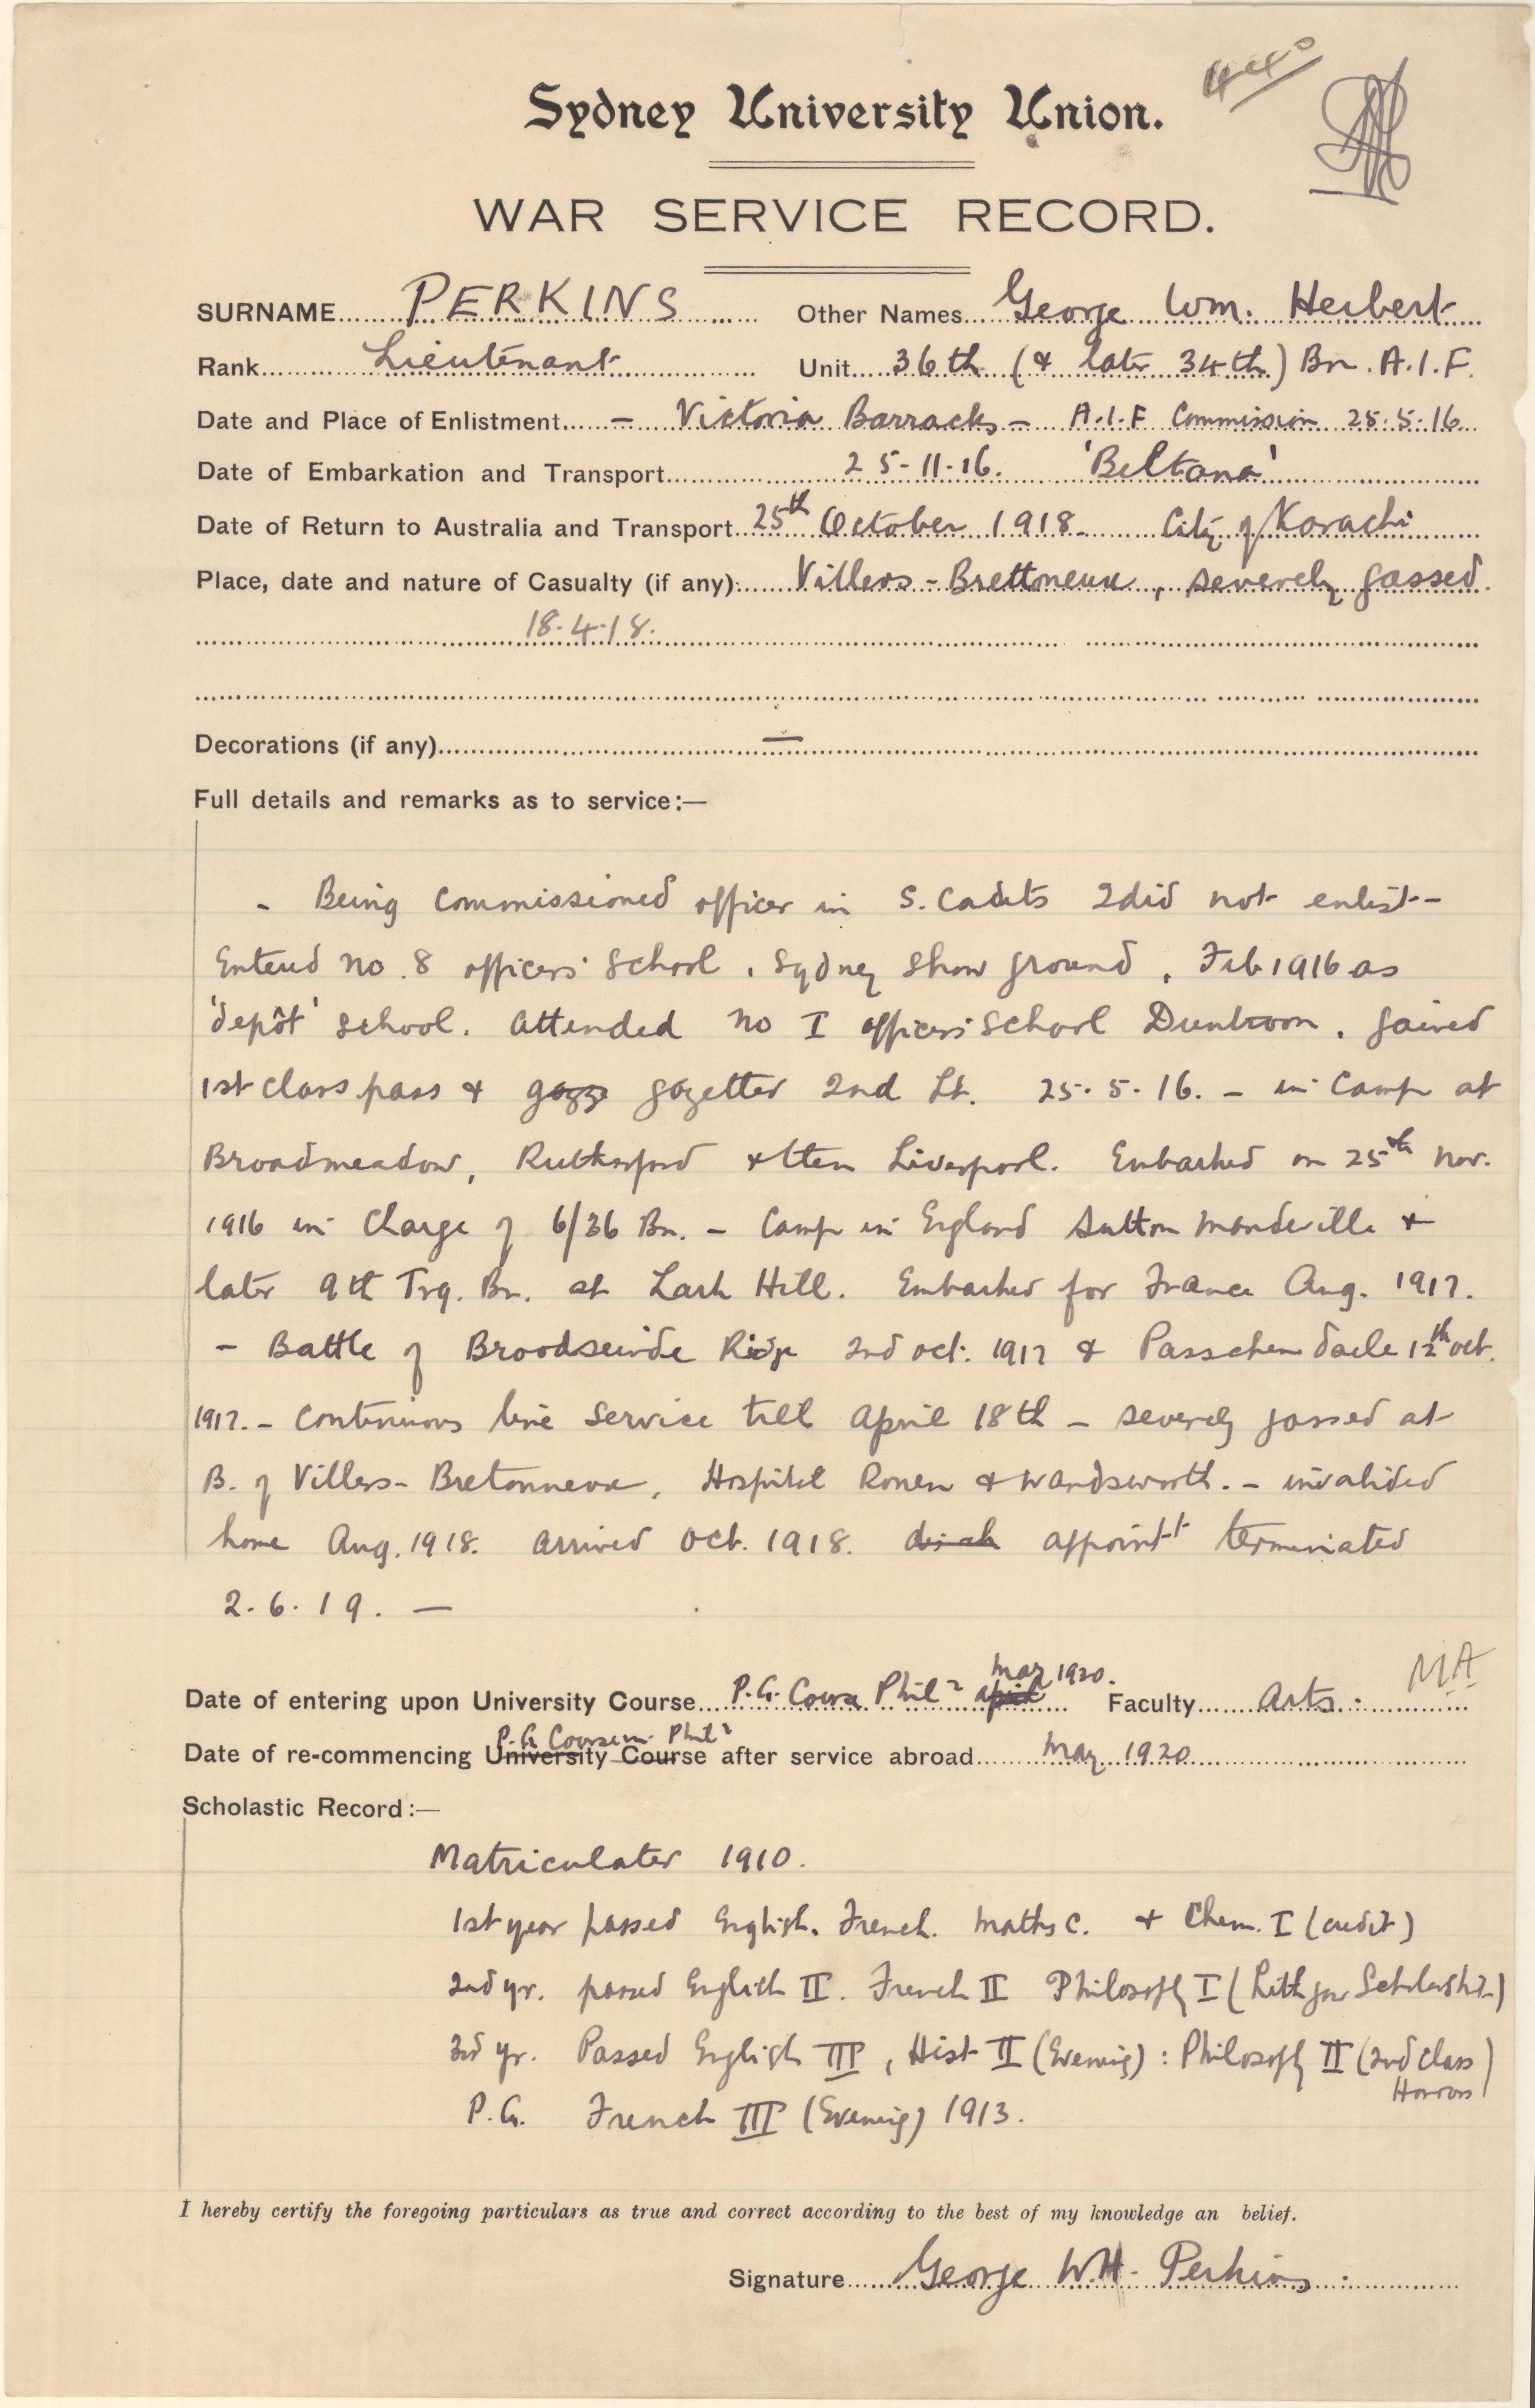 Sydney University Union.
WAR SERVICE RECORD.
SURNAME PERKINS Other Names George Wm. Herbert
Rank Lieutenant Unit 36th (& later 34th) Bn. A.I.F.
Date and Place of Enlistment – Victoria Barracks – A.I.F Commission 25.5.16
Date of Embarkation and Transport 25-11-16. 'Beltana'
Date of Return to Australia and Transport 25th October 1918. City of Karachi
Place, date and nature of Casualty (if any): Villers-Brettoneux, severely gassed.
18.4.18.
Decorations (if any) —
Full details and remarks as to service:—
- Being commissioned officer in S. Cadets I did not enlist -
Entered No. 8 officers' school, Sydney Show ground, Feb 1916 as
'depôt' school. Attended No I officers' school Duntroon. gained
1st class pass & gazze gazetted 2nd Lt. 25.5.16. - in camp at
Broadmeadow, Rutherford & then Liverpool. Embarked on 25th Nov.
1916 in charge of 6/36 Bn. - Camp in England Sutton Mandeville &
later 9th Trg. Bn. at Lark Hill. Embarked for France Aug. 1917.
- Battle of Broodseinde Ridge 2nd Oct. 1917 & Passchendaele 12th Oct.
1917. - Continuous line service till April 18th - severely gassed at
B. of Villers-Bretonneux. Hospital Rouen & Wandsworth. - invalided
home Aug. 1918. Arrived Oct. 1918. disch appoint-t terminated
2.6.19. —
MA
Mar 1920.
Date of entering upon University Course P.G. Course Phil² April Faculty Arts.
P.G. Course in Phil²
Date of re-commencing University Course after service abroad May 1920
Scholastic Record:—
Matriculated 1910.
1st year passed English. French. Maths C. & Chem. I (credit)
2nd yr. passed English II. French II Philosophy I (Lithgow Scholarship)
3rd yr. Passed English III, Hist II (Evening): Philosophy II (2nd Class
Honors)
P.G. French III (Evening) 1913.
I hereby certify the foregoing particulars as true and correct according to the best of my knowledge an belief.
Signature George W.H. Perkins